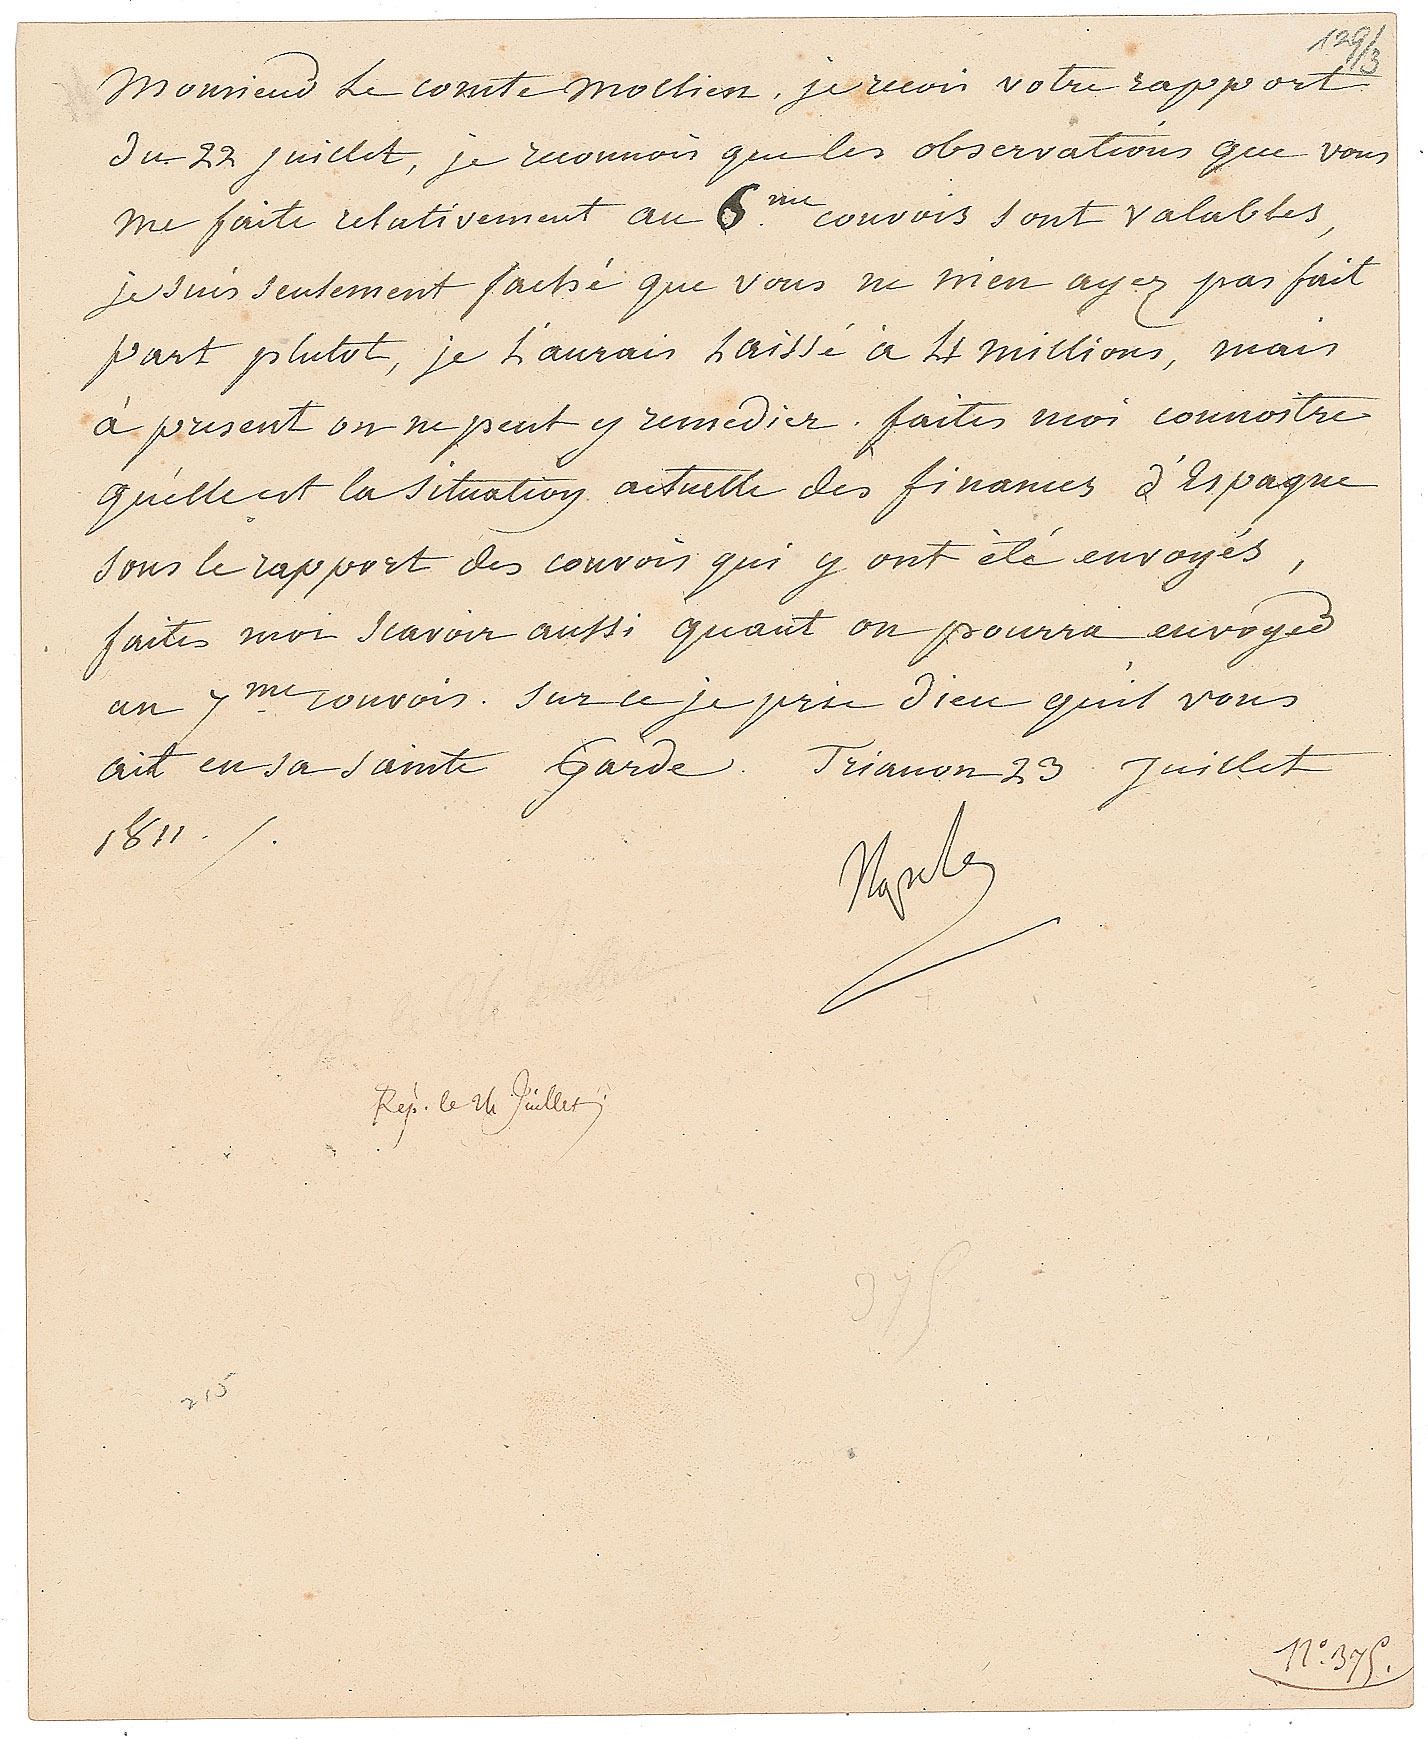 129/3
Monsieur Le comte Mollien. je recois votre rapport
du 22 juillet, je reconnois que les observations que vous
me faite relativement au 6.me convois sont valables,
je suis seulement faché que vous ne m'en ayez pas fait
part plutot, je L'aurais Laissé à 4 millions, mais
à present on ne peut y remedier. faites moi connoitre
qu'elle est la situation actuelle des finances d'Espagne
sous le rapport des convois qui y ont été envoyés,
faites moi scavoir aussi quant on pourra envoyer
un 7me convois. sur ce je prie dieu qu'il vous
ait en sa sainte Garde. Trianon 23 Juillet
1811. /.
Napole
Rép. le 24 Juillet
375
215
N.° 375.